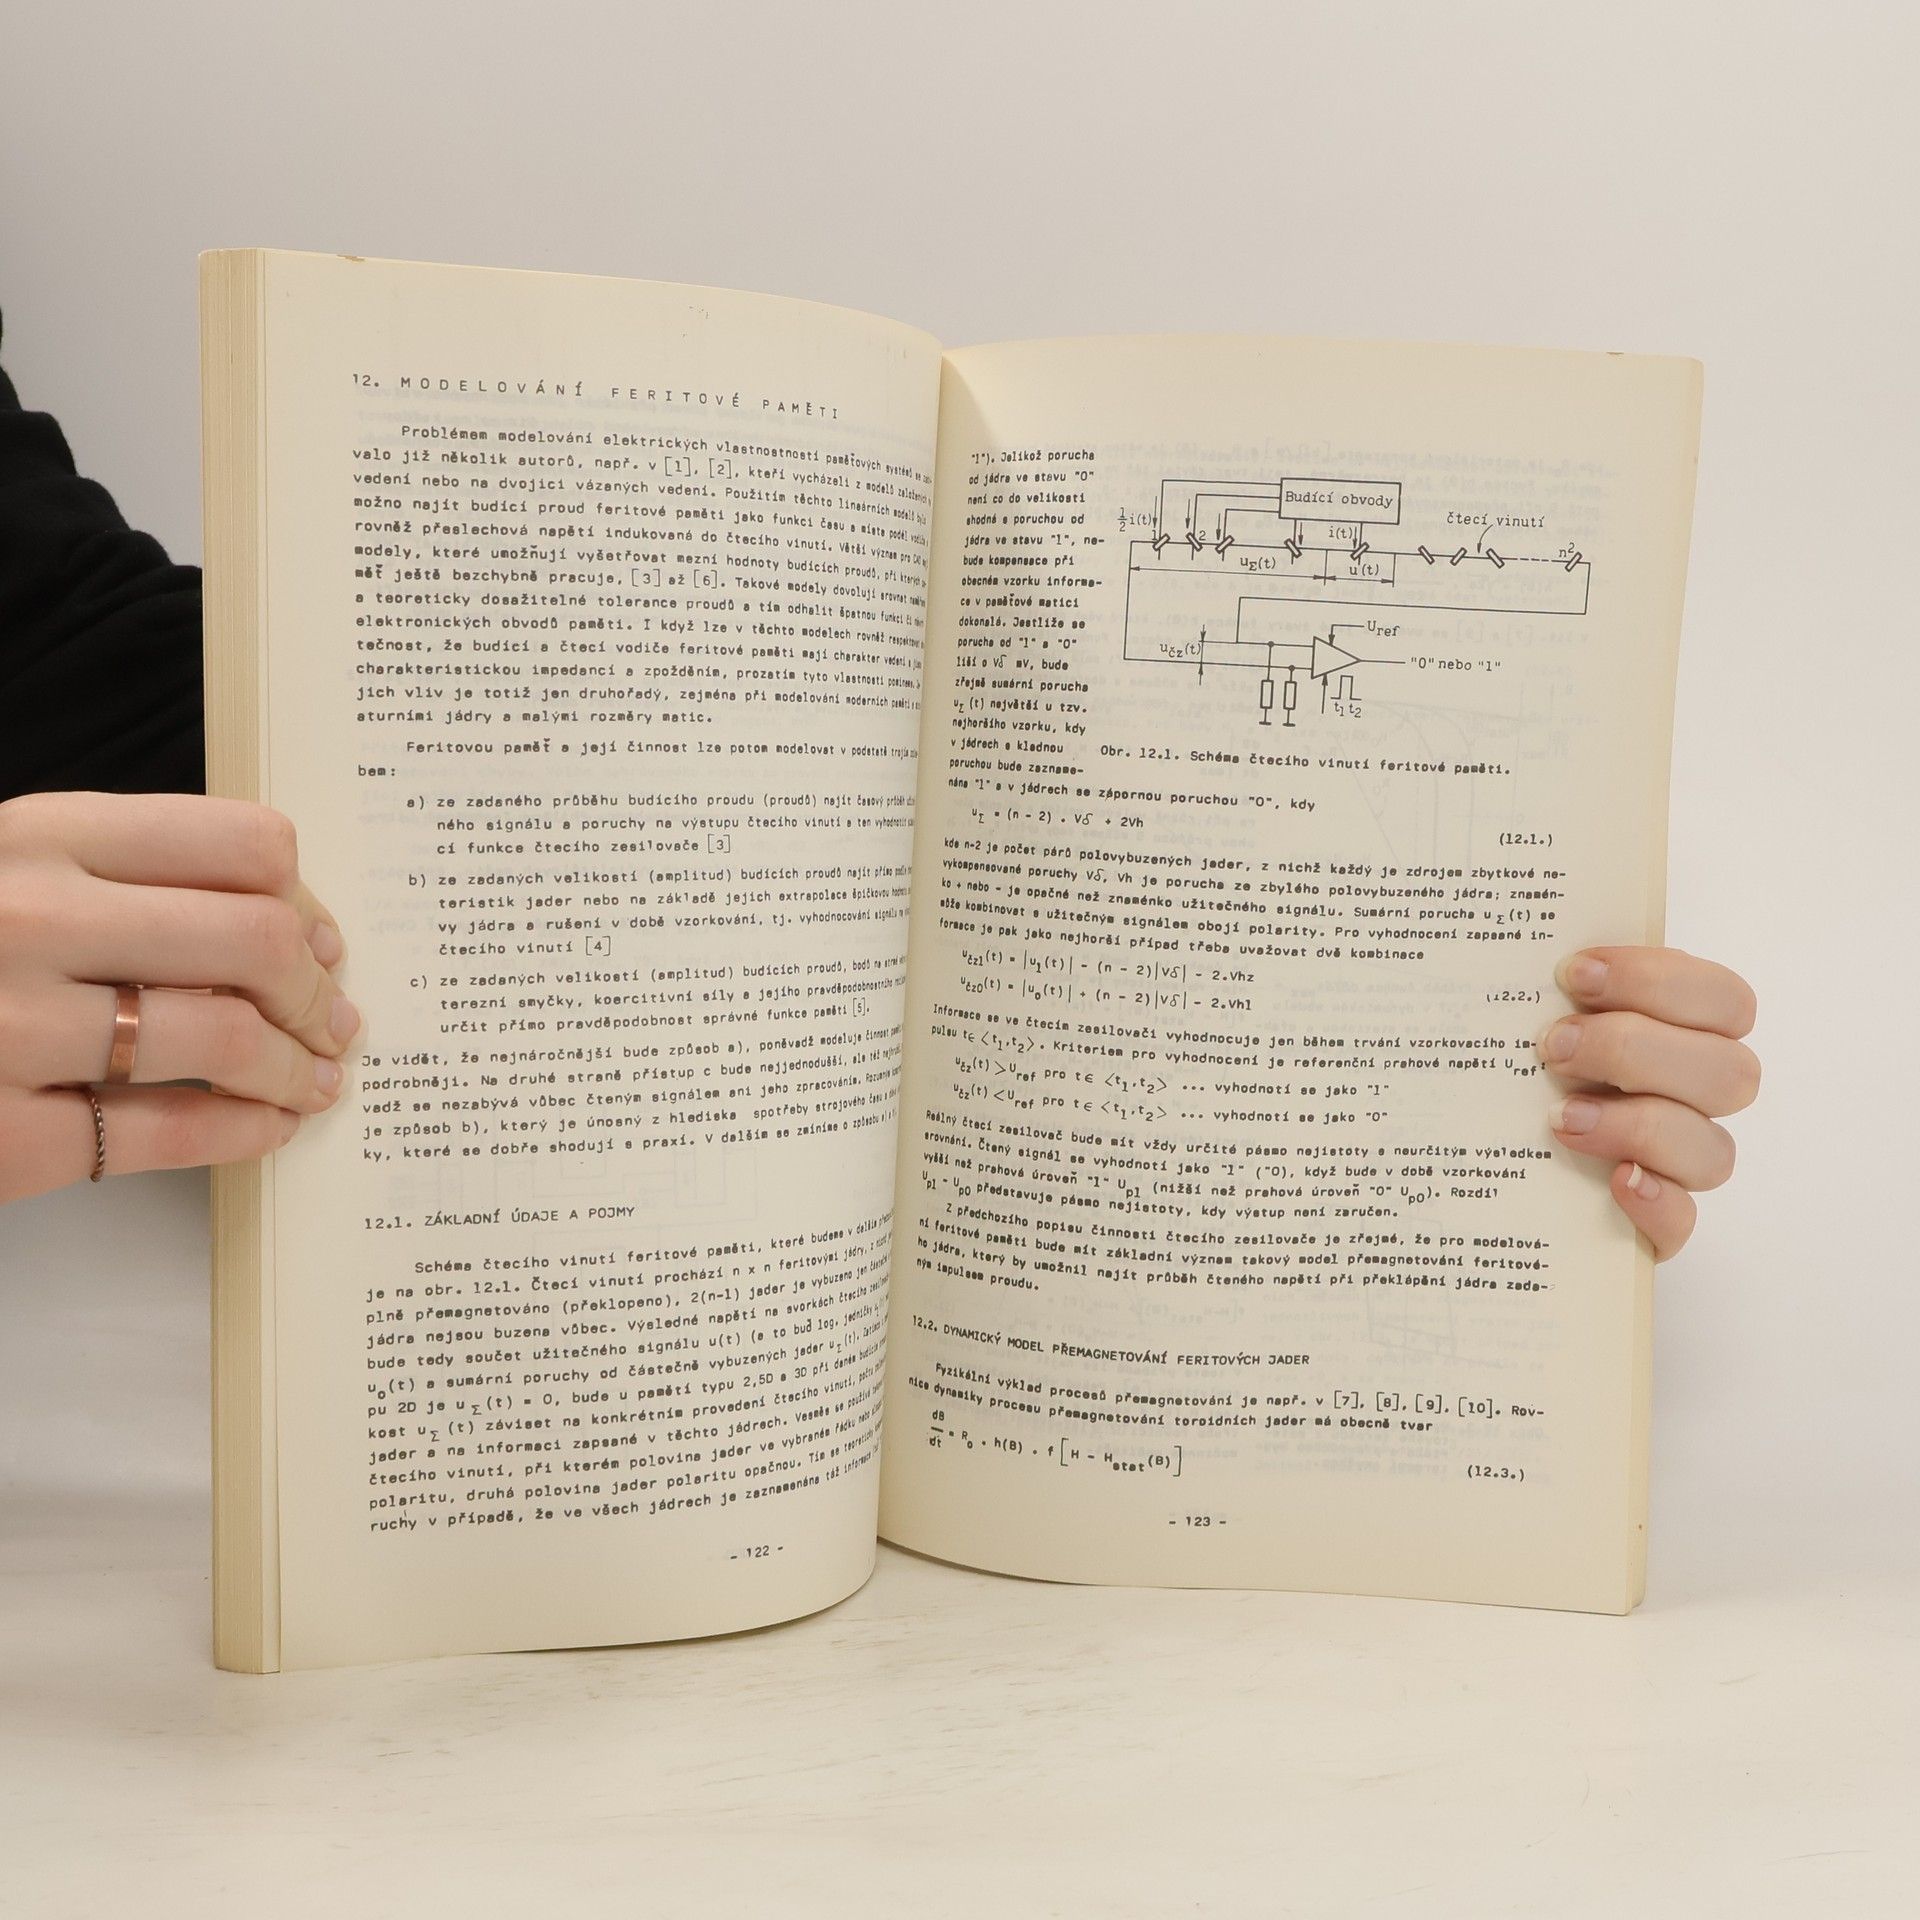 12. MODELOVÁNÍ FERITOVÉ PAMĚTI
Problémem modelování elektrických vlastnostností paměťových systémů se
valo již několik autorů, např. v [1], [2], kteří vycházeli z modelů založených
vedení nebo na dvojici vázaných vedení. Použitím těchto lineárních modelů bylo
možno najít budicí proud feritové paměti jako funkci času a místa podél
rovněž přeslechová napětí indukovaná do čtecího vinutí. Větší význam pro CAD
modely, které umožňují vyšetřovat mezní hodnoty budicích proudů, při kterých
měť ještě bezchybně pracuje, [3] až [6]. Takové modely dovolují srovnat
a teoreticky dosažitelné tolerance proudů a tím odhalit špatnou funkci či
elektronických obvodů paměti. I když lze v těchto modelech rovněž respektovat
tečnost, že budicí a čtecí vodiče feritové paměti mají charakter vedení s
charakteristickou impedancí a zpožděním, prozatím tyto vlastnosti
jich vliv je totiž jen druhořadý, zejména při modelování moderních pamětí
aturními jádry a malými rozměry matic.
Feritovou paměť a její činnost lze potom modelovat v podstatě trojím
bem:
a) ze zadaného průběhu budicího proudu (proudů) najít časový průběh
ného signálu a poruchy na výstupu čtecího vinutí a ten vyhodnotit
cí funkce čtecího zesilovače [3]
b) ze zadaných velikostí (amplitud) budicích proudů najít přímo podle
teristik jader nebo na základě jejich extrapolace špičkovou hodnotu
vy jádra a rušení v době vzorkování, tj. vyhodnocování signálu na
čtecího vinutí [4]
c) ze zadaných velikostí (amplitud) budicích proudů, bodů na
terezní smyčky, koercitivní síly a jejího pravděpodobnostního
určit přímo pravděpodobnost správné funkce paměti [5].
Je vidět, že nejnáročnější bude způsob a), poněvadž modeluje činnost
podrobněji. Na druhé straně přístup c bude nejjednodušší, ale též
vadž se nezabývá vůbec čteným signálem ani jeho zpracováním. Rozumným
je způsob b), který je únosný z hlediska spotřeby strojového času a
ky, které se dobře shodují s praxí. V dalším se zmíníme o způsobu a)
12.1. ZÁKLADNÍ ÚDAJE A POJMY
Schéma čtecího vinutí feritové paměti, které budeme v dalším
je na obr. 12.1. Čtecí vinutí prochází n x n feritovými jádry, z nichž
plně přemagnetováno (překlopeno), 2(n-1) jader je vybuzeno jen částečně
jádra nejsou buzena vůbec. Výsledné napětí na svorkách čtecího
bude tedy součet užitečného signálu u(t) (a to buď log. jedničky
u₀(t) a sumární poruchy od částečně vybuzených jader uΣ(t).
pu 2D je uΣ(t) = 0, bude u pamětí typu 2,5D a 3D při daném
kost uΣ(t) záviset na konkrétním provedení čtecího vinutí,
jader a na informaci zapsané v těchto jádrech. Vesměs se používá
čtecího vinutí, při kterém polovina jader ve vybraném řádku nebo
polaritu, druhá polovina jader polaritu opačnou. Tím se teoreticky
ruchy v případě, že ve všech jádrech je zaznamenána táž informace
- 122 -
"1"). Jelikož porucha
od jádra ve stavu "0"
není co do velikosti
shodná s poruchou od
jádra ve stavu "1", ne-
bude kompensace při
obecném vzorku informa-
ce v paměťové matici
dokonalá. Jestliže se
porucha od "1" a "0"
liší o Vδ mV, bude
zřejmě sumární porucha
uΣ(t) největší u tzv.
nejhoršího vzorku, kdy
v jádrech s kladnou
poruchou bude zazname-
nána "1" a v jádrech se zápornou poruchou "0", kdy
Budicí obvody
½i(t)
1
2
i(t)
čtecí vinutí
n²
uΣ(t)
u'(t)
Uref
učz(t)
"0" nebo "1"
t₁ t₂
Obr. 12.1. Schéma čtecího vinutí feritové paměti.
uΣ = (n - 2) . Vδ + 2Vh (12.1.)
kde n-2 je počet párů polovybuzených jader, z nichž každý je zdrojem zbytkové ne-
vykompensované poruchy Vδ, Vh je porucha ze zbylého polovybuzeného jádra; znamén-
ko + nebo - je opačné než znaménko užitečného signálu. Sumární porucha uΣ(t) se
může kombinovat s užitečným signálem obojí polarity. Pro vyhodnocení zapsané in-
formace je pak jako nejhorší případ třeba uvažovat dvě kombinace
učz1(t) = |u₁(t)| - (n - 2)|Vδ| - 2.Vhz
učz0(t) = |u₀(t)| + (n - 2)|Vδ| - 2.Vh1 (12.2.)
Informace se ve čtecím zesilovači vyhodnocuje jen během trvání vzorkovacího im-
pulsu t∈⟨t₁,t₂⟩. Kriteriem pro vyhodnocení je referenční prahové napětí Uref:
učz(t) > Uref pro t∈ ⟨t₁,t₂⟩ ... vyhodnotí se jako "1"
učz(t) < Uref pro t∈ ⟨t₁,t₂⟩ ... vyhodnotí se jako "0"
Reálný čtecí zesilovač bude mít vždy určité pásmo nejistoty s neurčitým výsledkem
srovnání. Čtený signál se vyhodnotí jako "1" ("0), když bude v době vzorkování
vyšší než prahová úroveň "1" Up1 (nižší než prahová úroveň "0" Up0). Rozdíl
Up1 - Up0 představuje pásmo nejistoty, kdy výstup není zaručen.
Z předchozího popisu činnosti čtecího zesilovače je zřejmé, že pro modelová-
ní feritové paměti bude mít základní význam takový model přemagnetování feritové-
ho jádra, který by umožnil najít průběh čteného napětí při překlápění jádra zada-
ným impulsem proudu.
12.2. DYNAMICKÝ MODEL PŘEMAGNETOVÁNÍ FERITOVÝCH JADER
Fyzikální výklad procesů přemagnetování je např. v [7], [8], [9], [10]. Rov-
nice dynamiky procesu přemagnetování toroidních jader má obecně tvar
dB/dt = R₀ . h(B) . f [H - Hstat(B)] (12.3.)
- 123 -